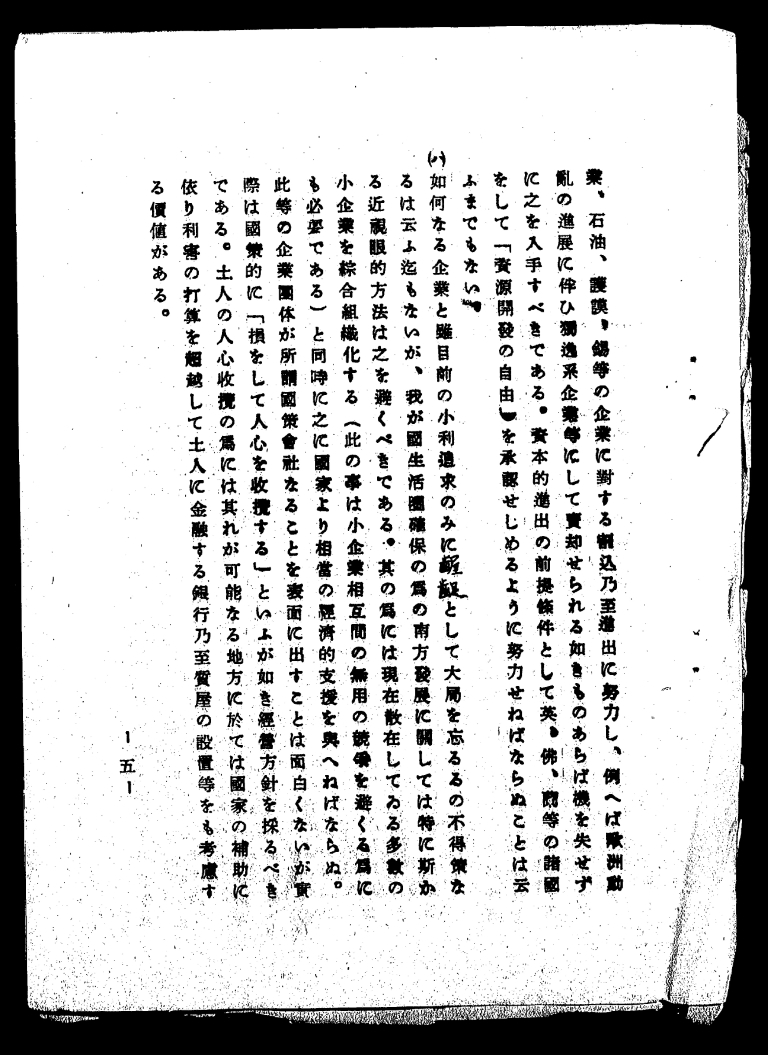 業、石油、護謨、錫等の企業に對する割込乃至進出に努力し、例へば歐洲動
亂の進展に伴ひ獨逸系企業等にして賣却せられる如きものあらば機を失せず
に之を入手すべきである。資本的進出の前提條件として英、佛、蘭等の諸國
をして「資源開發の自由」を承認せしめるように努力せねばならぬことは云
ふまでもない。
(ハ)如何なる企業と雖目前の小利追求のみに齷齪として大局を忘るるの不得策な
るは云ふ迄もないが、我が國生活圏確保の爲の南方發展に關しては特に斯か
る近視眼的方法は之を避くべきである。其の爲には現在散在してゐる多數の
小企業を綜合組織化する(此の事は小企業相互間の無用の競爭を避くる爲に
も必要である)と同時に之に國家より相當の經濟的支援を與へねばならぬ。
此等の企業團体が所謂國策會社なることを表面に出すことは面白くないが實
際は國策的に「損をして人心を收攬する」といふが如き經營方針を採るべき
である。土人の人心收攬の爲には其れが可能なる地方に於ては國家の補助に
依り利害の打算を超越して土人に金融する銀行乃至質屋の設置等をも考慮す
る價値がある。
ー五ー